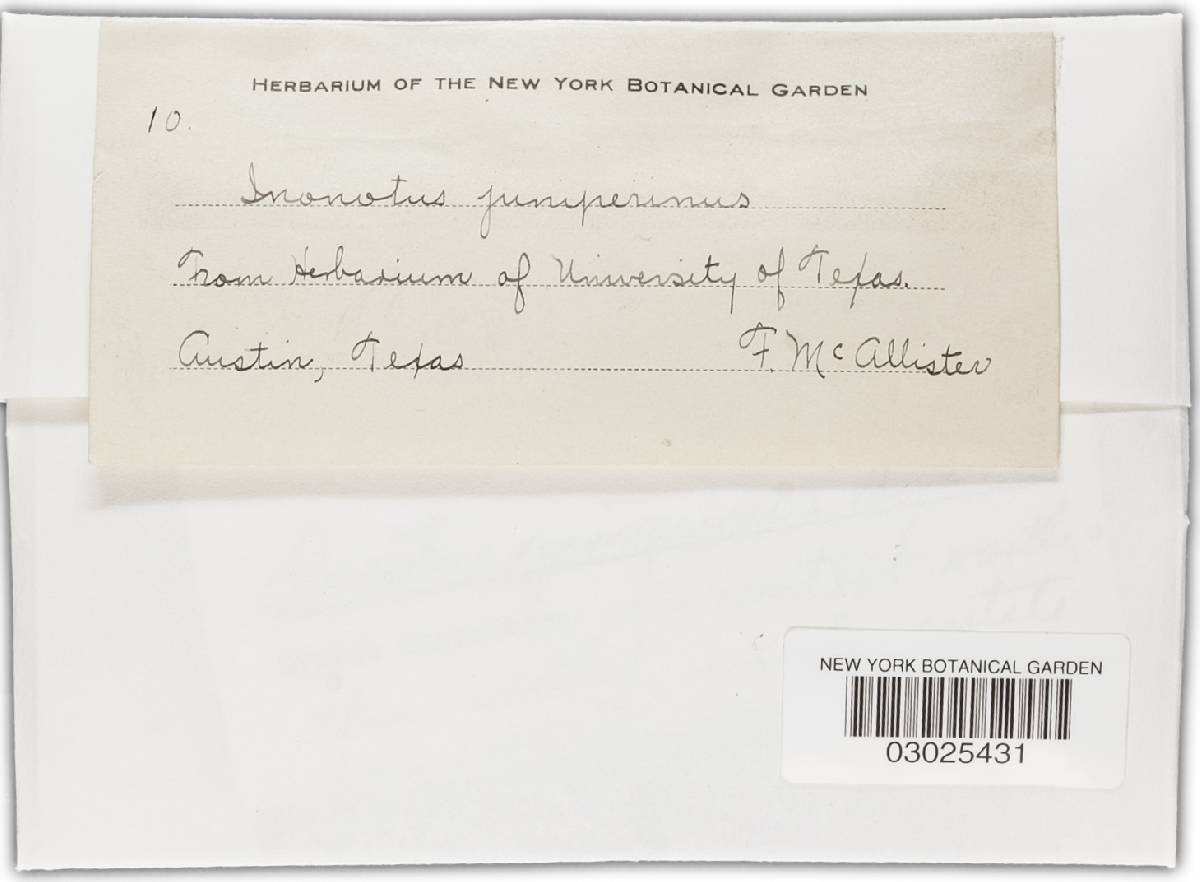 HERBARIUM OF THE NEW YORK BOTANICAL GARDEN
10.
Inonotus juniperinus
From Herbarium of University of Texas.
Austin, Texas F. McAllister
NEW YORK BOTANICAL GARDEN
03025431